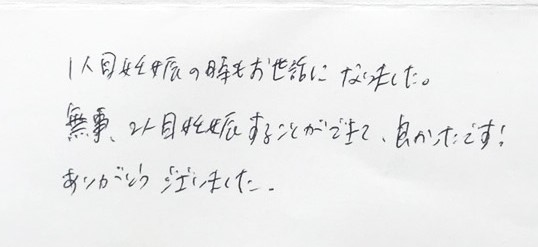 1人目妊娠の時もお世話になりました。
無事、2人目妊娠することができて、良かったです!
ありがとうございました。